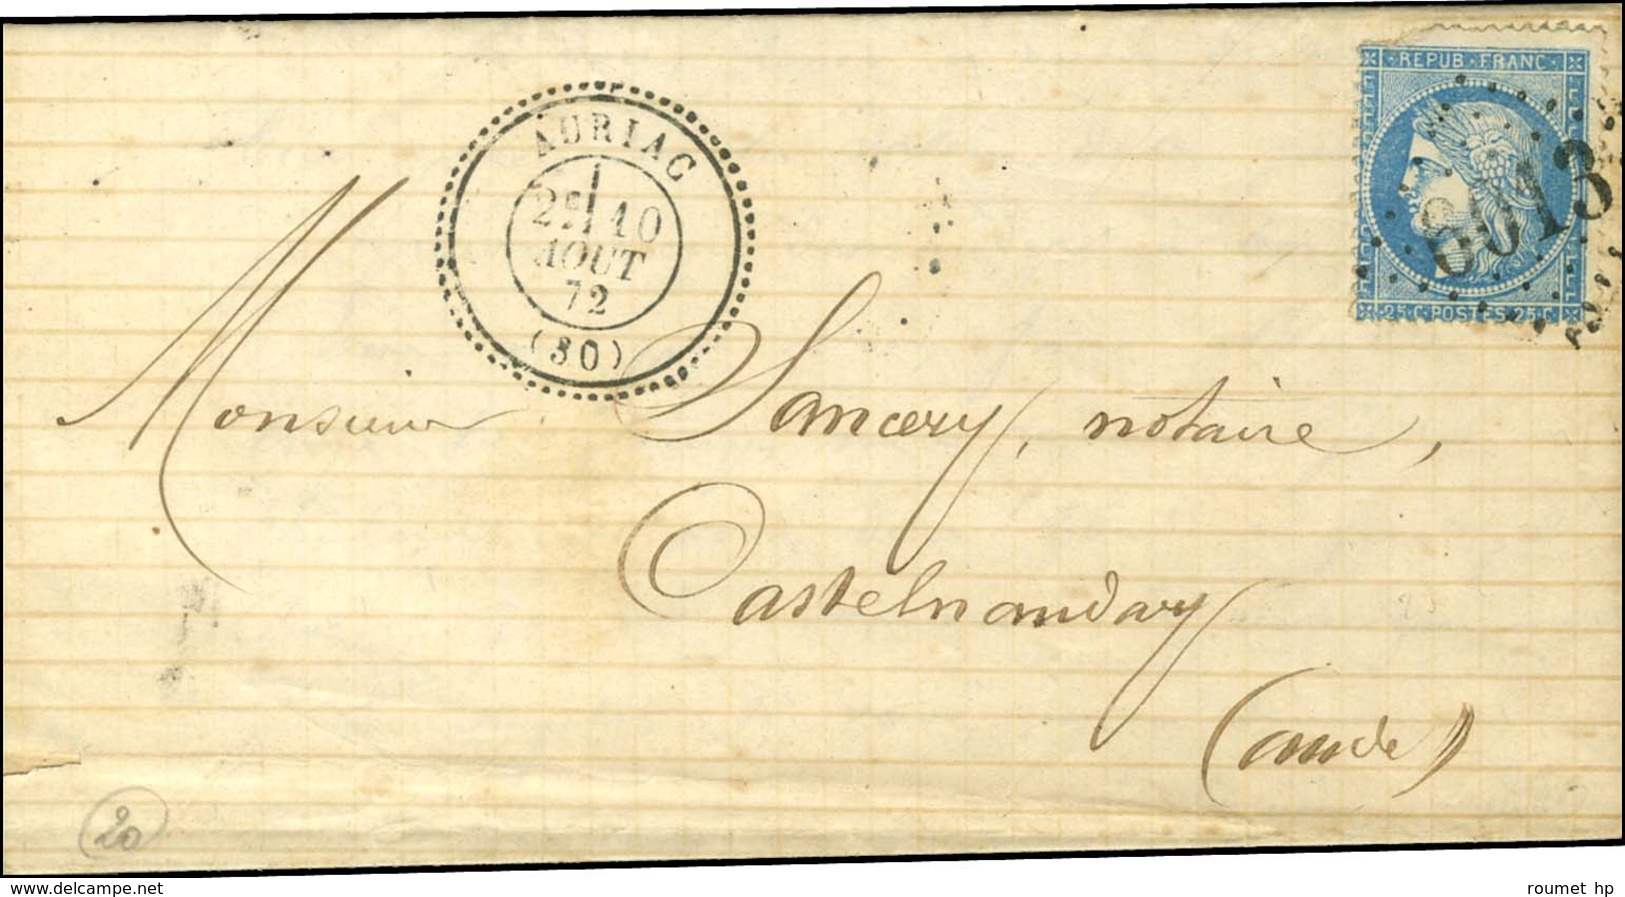 REPUB · FRANC ·
25 · C · POSTES · 25 · C
6013
AURIAC
2E 10
AOUT
72
(30)
Monsieur Sancery, notaire,
Castelnaudary
(aude)
20
www.delcampe.net
roumet hp